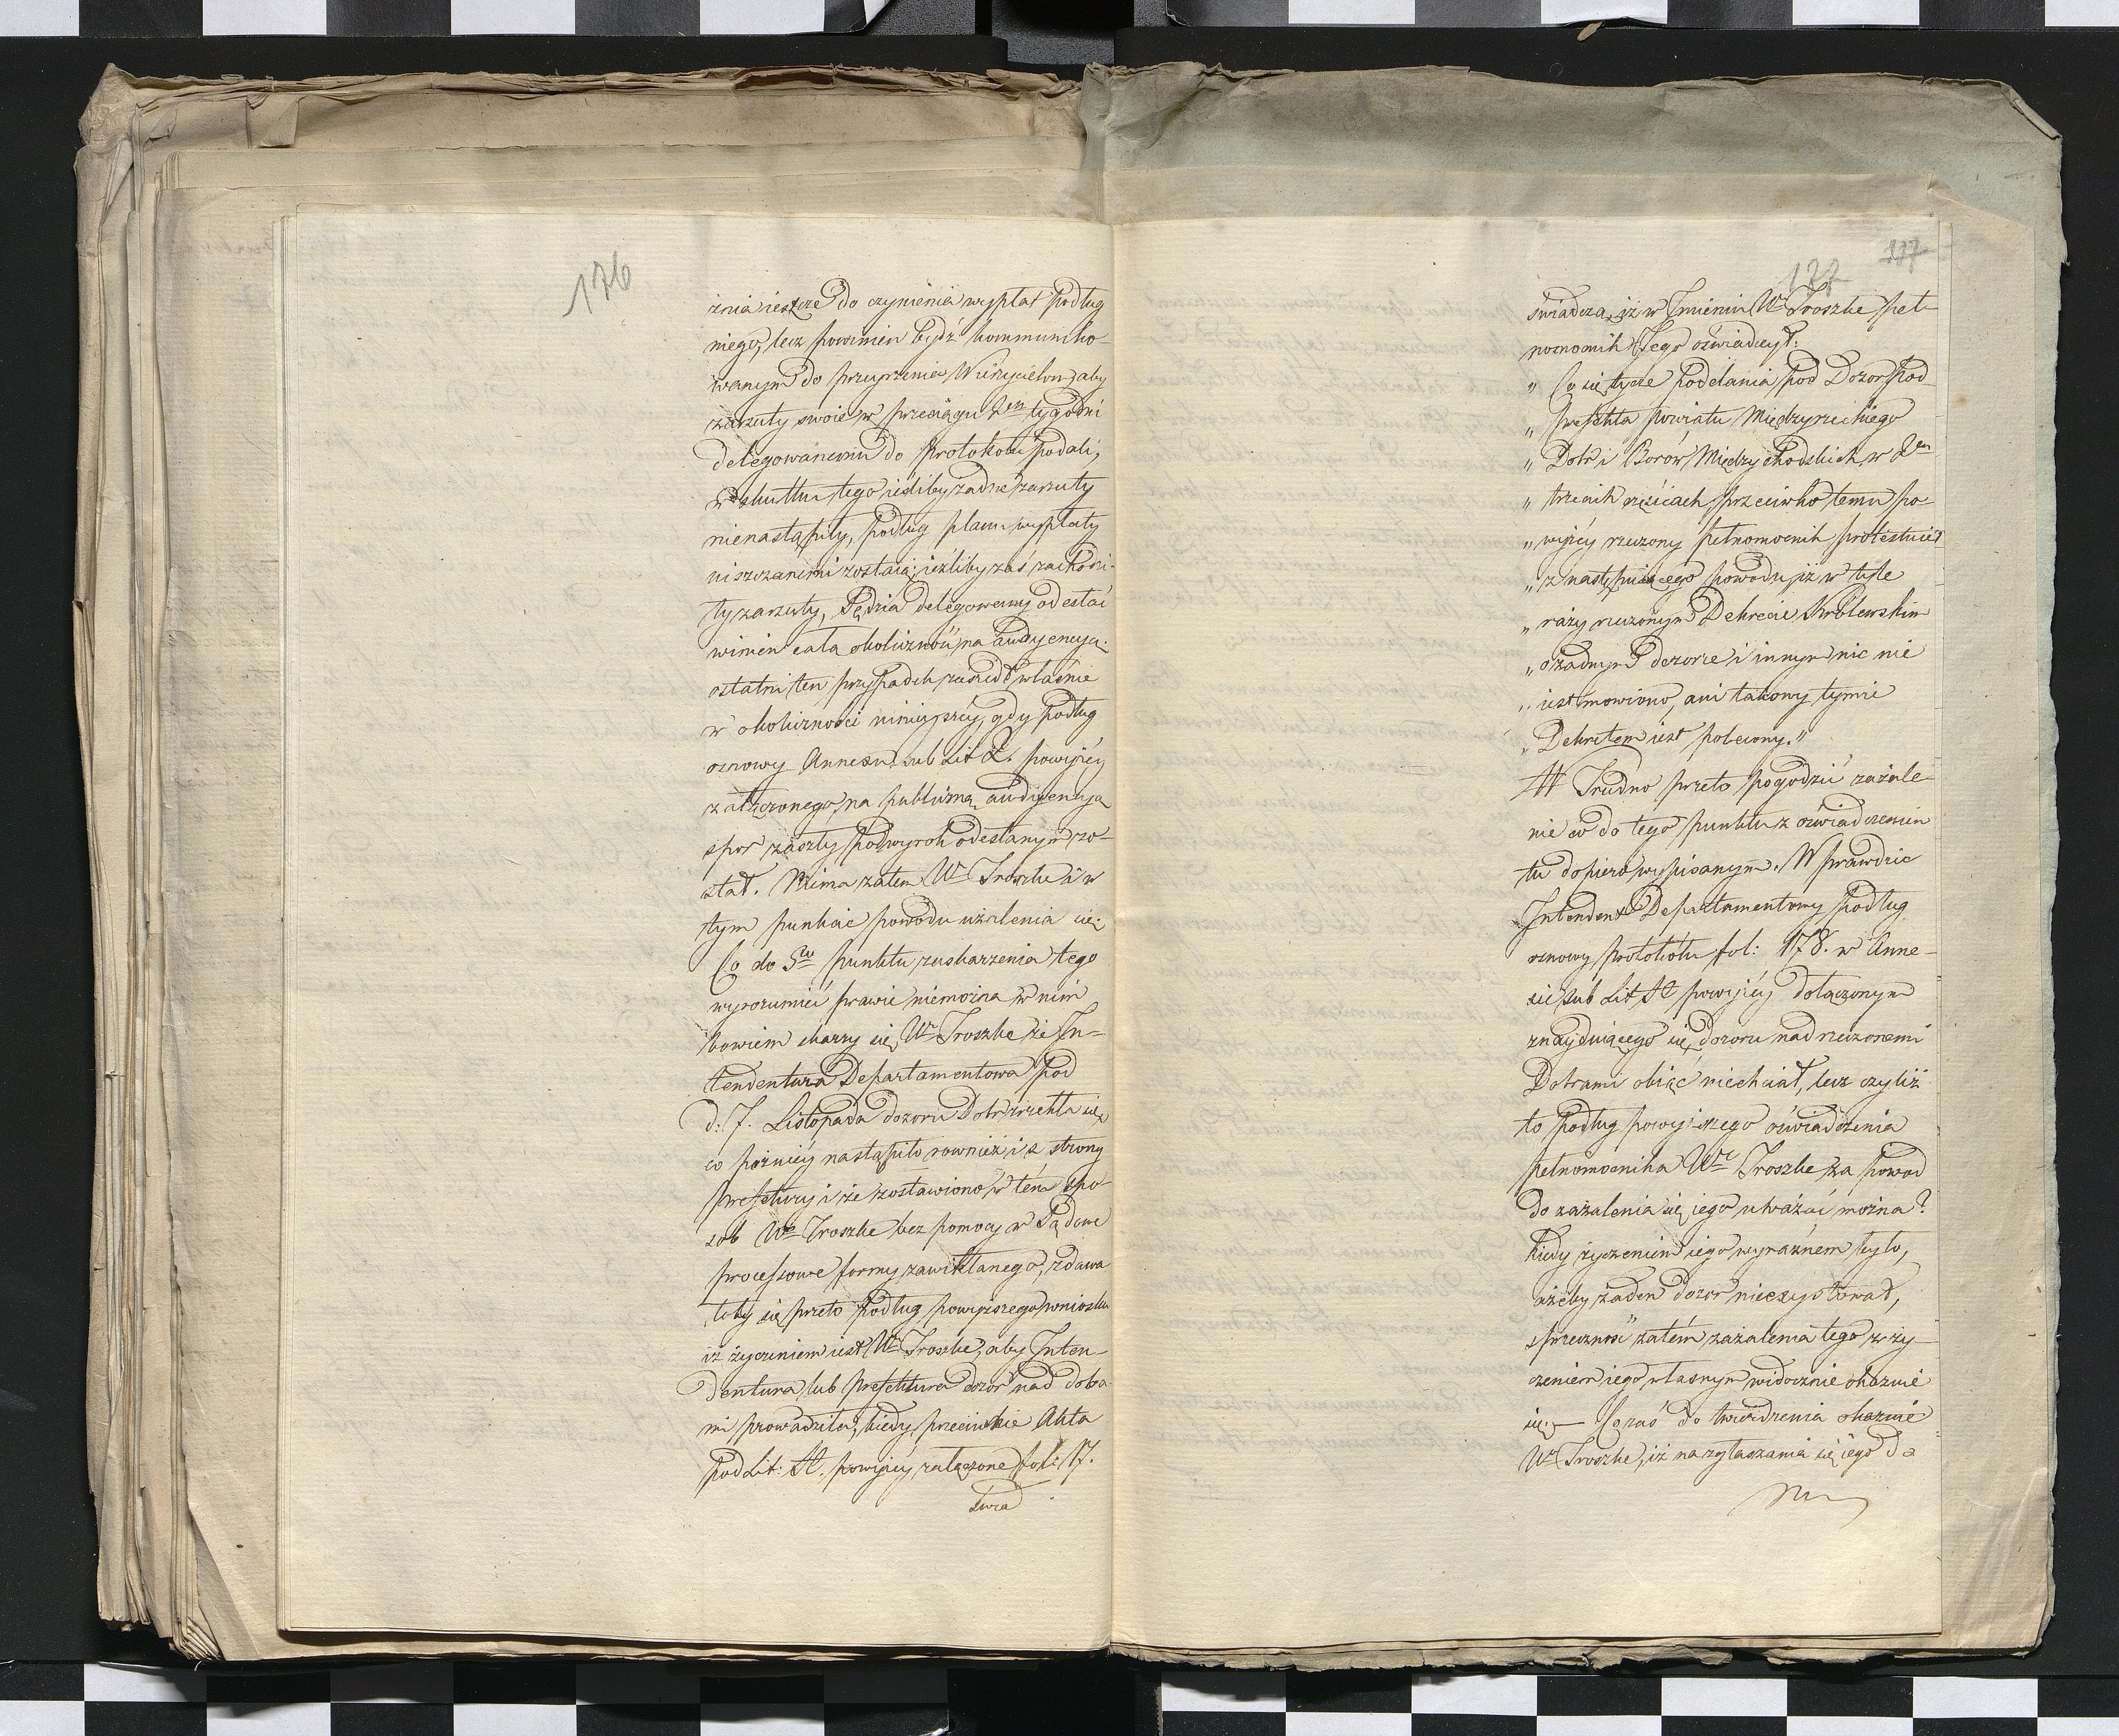 176
źnia ieszcze do czynienia wypłat podług
niego, lecz powinien bydź kommuniko-
wanym do przeyrzenia Wierzycielom, aby
zarzuty swoie w przeciągu 2ch tygodni
delegowanemu do Protokołu podali,
w skutku tego ieśliby żadne zarzuty
nienastąpiły, podług planu wypłaty
uiszczanemi zostaią, ieżliby zaś zachodzi-
ły zarzuty, Sędzia delegowany odesłać
winien całą okoliczność na audyencyą.
ostatni ten przypadek zaszedł właśnie
w okoliczności ninieyszéy, gdy podług
osnowy Annexu sub Lit. powyżéy
załączonego, na publiczną audyencyą
spor zaszły pod wyrok odesłanym zo-
stał. Niema zatem Wr Troszke i w
tym punkcie powodu użalenia się;
Co do 5go punktu zaskarżenia tego
wyrozumieć prawie niemożna, w nim
bowiem skarży się Wr Troszke że In-
tendentura Departamentowa pod
d: 7. Listopada dozoru Dobr zrzekła się,
co pożniey nastąpiło rownież i z strony
Prefektury i że zostawiono w tém spo-
sob Wo Troszke bez pomocy w Sądowe
processowe formy zawikłanego, zdawa
łoby się przeto podług powyższego wniosku
iż życzeniem iest Wo Troszke, aby Inten-
dentura lub Prefektura dozor nad dobra
mi prowadziła, kiedy przeciwnie Akta
pod Lit: A. powyżey załączone fol: 17.
świad
177
177
świadcza, iż w Imieniu Wo Troszke peł-
nomocnik Jego oświadczył:
„ Co się tycze poddania pod Dozor Pod-
„ prefekta powiatu Międzyrzeckiego
„ Dobr i Borów Międzychodskich w 2ch
„ trzecich częściach, przeciwko temu po-
„ wyżéy rzeczony pełnomocnik protestuie
„ z następuiącego powodu, iż w tyle
„ razy rzeczonym Dekrecie Królewskim
„ o żadnym dozorze i innym nic nie
„ iest mowiono, ani takowy tymże
„ Dekretem iest polecony."
Trudno przeto pogodzić zażale-
nie co do tego punktu z oświadczeniem
tu dopiero wypisanym. Wprawdzie
Intendent Departamentowy podług
osnowy protokółu fol: 178. w Anne-
xie sub Lit A powyżéy dołączonym
znayduiącego się, dozoru nad rzeczonemi
Dobrami obiąć niechciał, lecz czyliż
to podług powyższego oświadczenia
pełnomocnika Wo Troszke za powod
do zażalenia się iego uważać można?
kiedy życzeniem iego wyraźnem było,
ażeby żaden dozor nieexystował,
sprzeczność zatém zażalenia tego z ży-
czeniem iego własnym widocznie okazuie
się. — Co zaś do twierdzenia okazuie
Wo Troszke, iż na zgłaszania się iego do